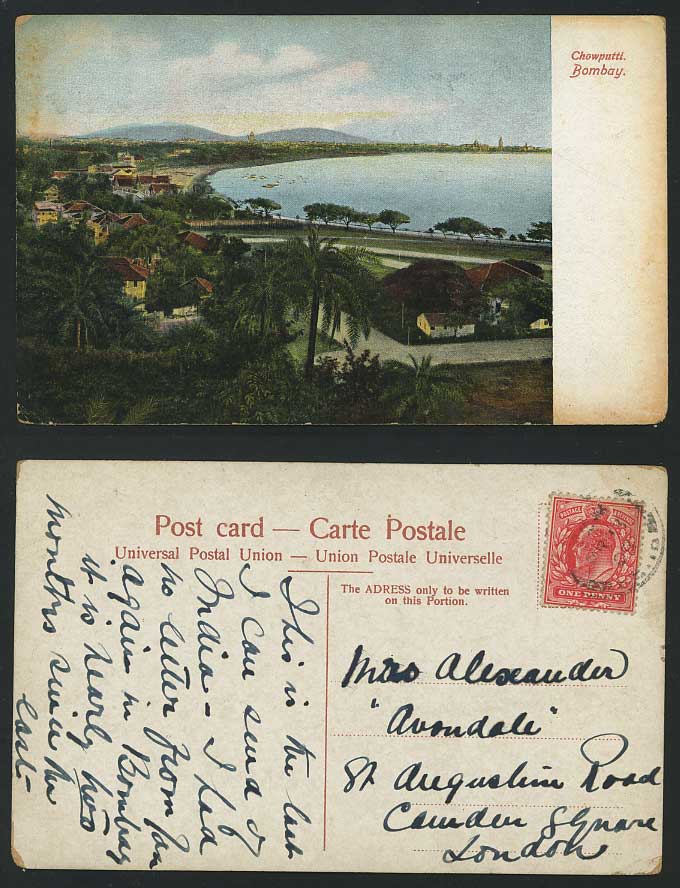 Chowputti.
Bombay.
Post card — Carte Postale
Universal Postal Union — Union Postale Universelle
The ADRESS only to be written
on this Portion.
POSTAGE
ONE PENNY
This is the last
I can send of
India - I had
no letter from
again in Bombay
it is nearly two
months since the
last -
Mrs Alexander
"Avondale"
St. Augustine Road
Camden Square
London